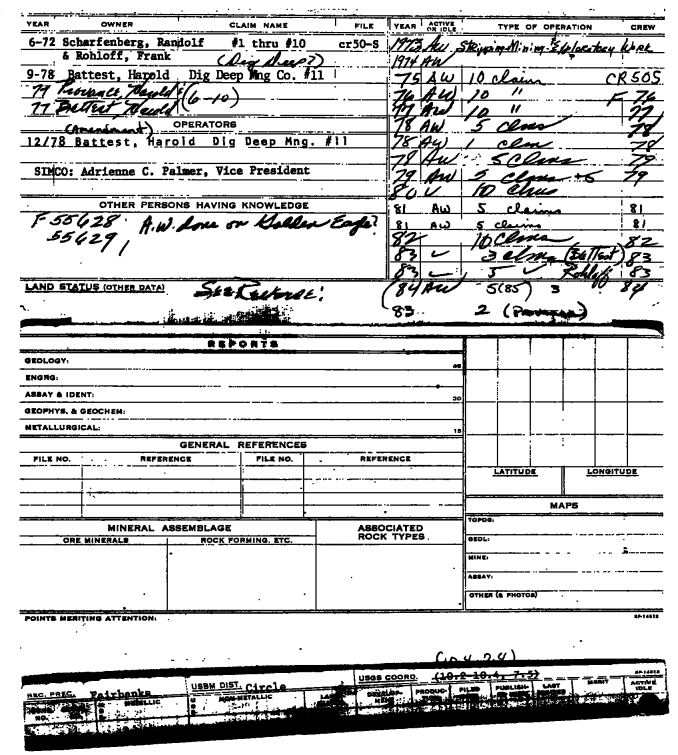 YEAR OWNER CLAIM NAME FILE
6-72 Scharfenberg, Randolf #1 thru #10 cr50-S
& Rohloff, Frank (Dig Deep?)
9-78 Battest, Harold Dig Deep Mng Co. #11
77 Battest Harold (6-10)
(Amendment) OPERATORS
12/78 Battest, Harold Dig Deep Mng. #11
SIMCO: Adrienne C. Palmer, Vice President
OTHER PERSONS HAVING KNOWLEDGE
F 55628. A.W. done on Golden Eagle?
55629
LAND STATUS (OTHER DATA) See Reverse!
YEAR ACTIVE OR IDLE TYPE OF OPERATION CREW
1973 AW Stripping-Mining-Exploratory Work
1974 AW
75 AW 10 claim CR505
76 AW 10 " F 76
77 AW 10 " 77
78 AW 5 clms 78
78 AW 1 clm 78
78 AW 5 Clms 79
79 AW 5 clms +5 79
80 ✓ 10 clms
81 AW 5 claims 81
81 AW 5 claims 81
82 10 Clms 82
83 ✓ 3 clms (Battest) 83
83 ✓ 5 ✓ Rohloff 83
(84 AW 5(85) 3 84
83 2
REPORTS
GEOLOGY:
ENGRG:
ASSAY & IDENT: 30
GEOPHYS. & GEOCHEM:
METALLURGICAL: 15
GENERAL REFERENCES
FILE NO. REFERENCE FILE NO. REFERENCE
LATITUDE LONGITUDE
MAPS
TOPOG:
GEOL:
MINE:
ASSAY:
OTHER (& PHOTOS)
MINERAL ASSEMBLAGE ASSOCIATED ROCK TYPES
ORE MINERALS ROCK FORMING, ETC.
POINTS MERITING ATTENTION:
(10.4, 7.4)
REC. PREC. Fairbanks USBM DIST. Circle USGS COORD. (10.2-10.4, 7.5)
METALLIC PUBLISH- LAST MERIT ACTIVE IDLE